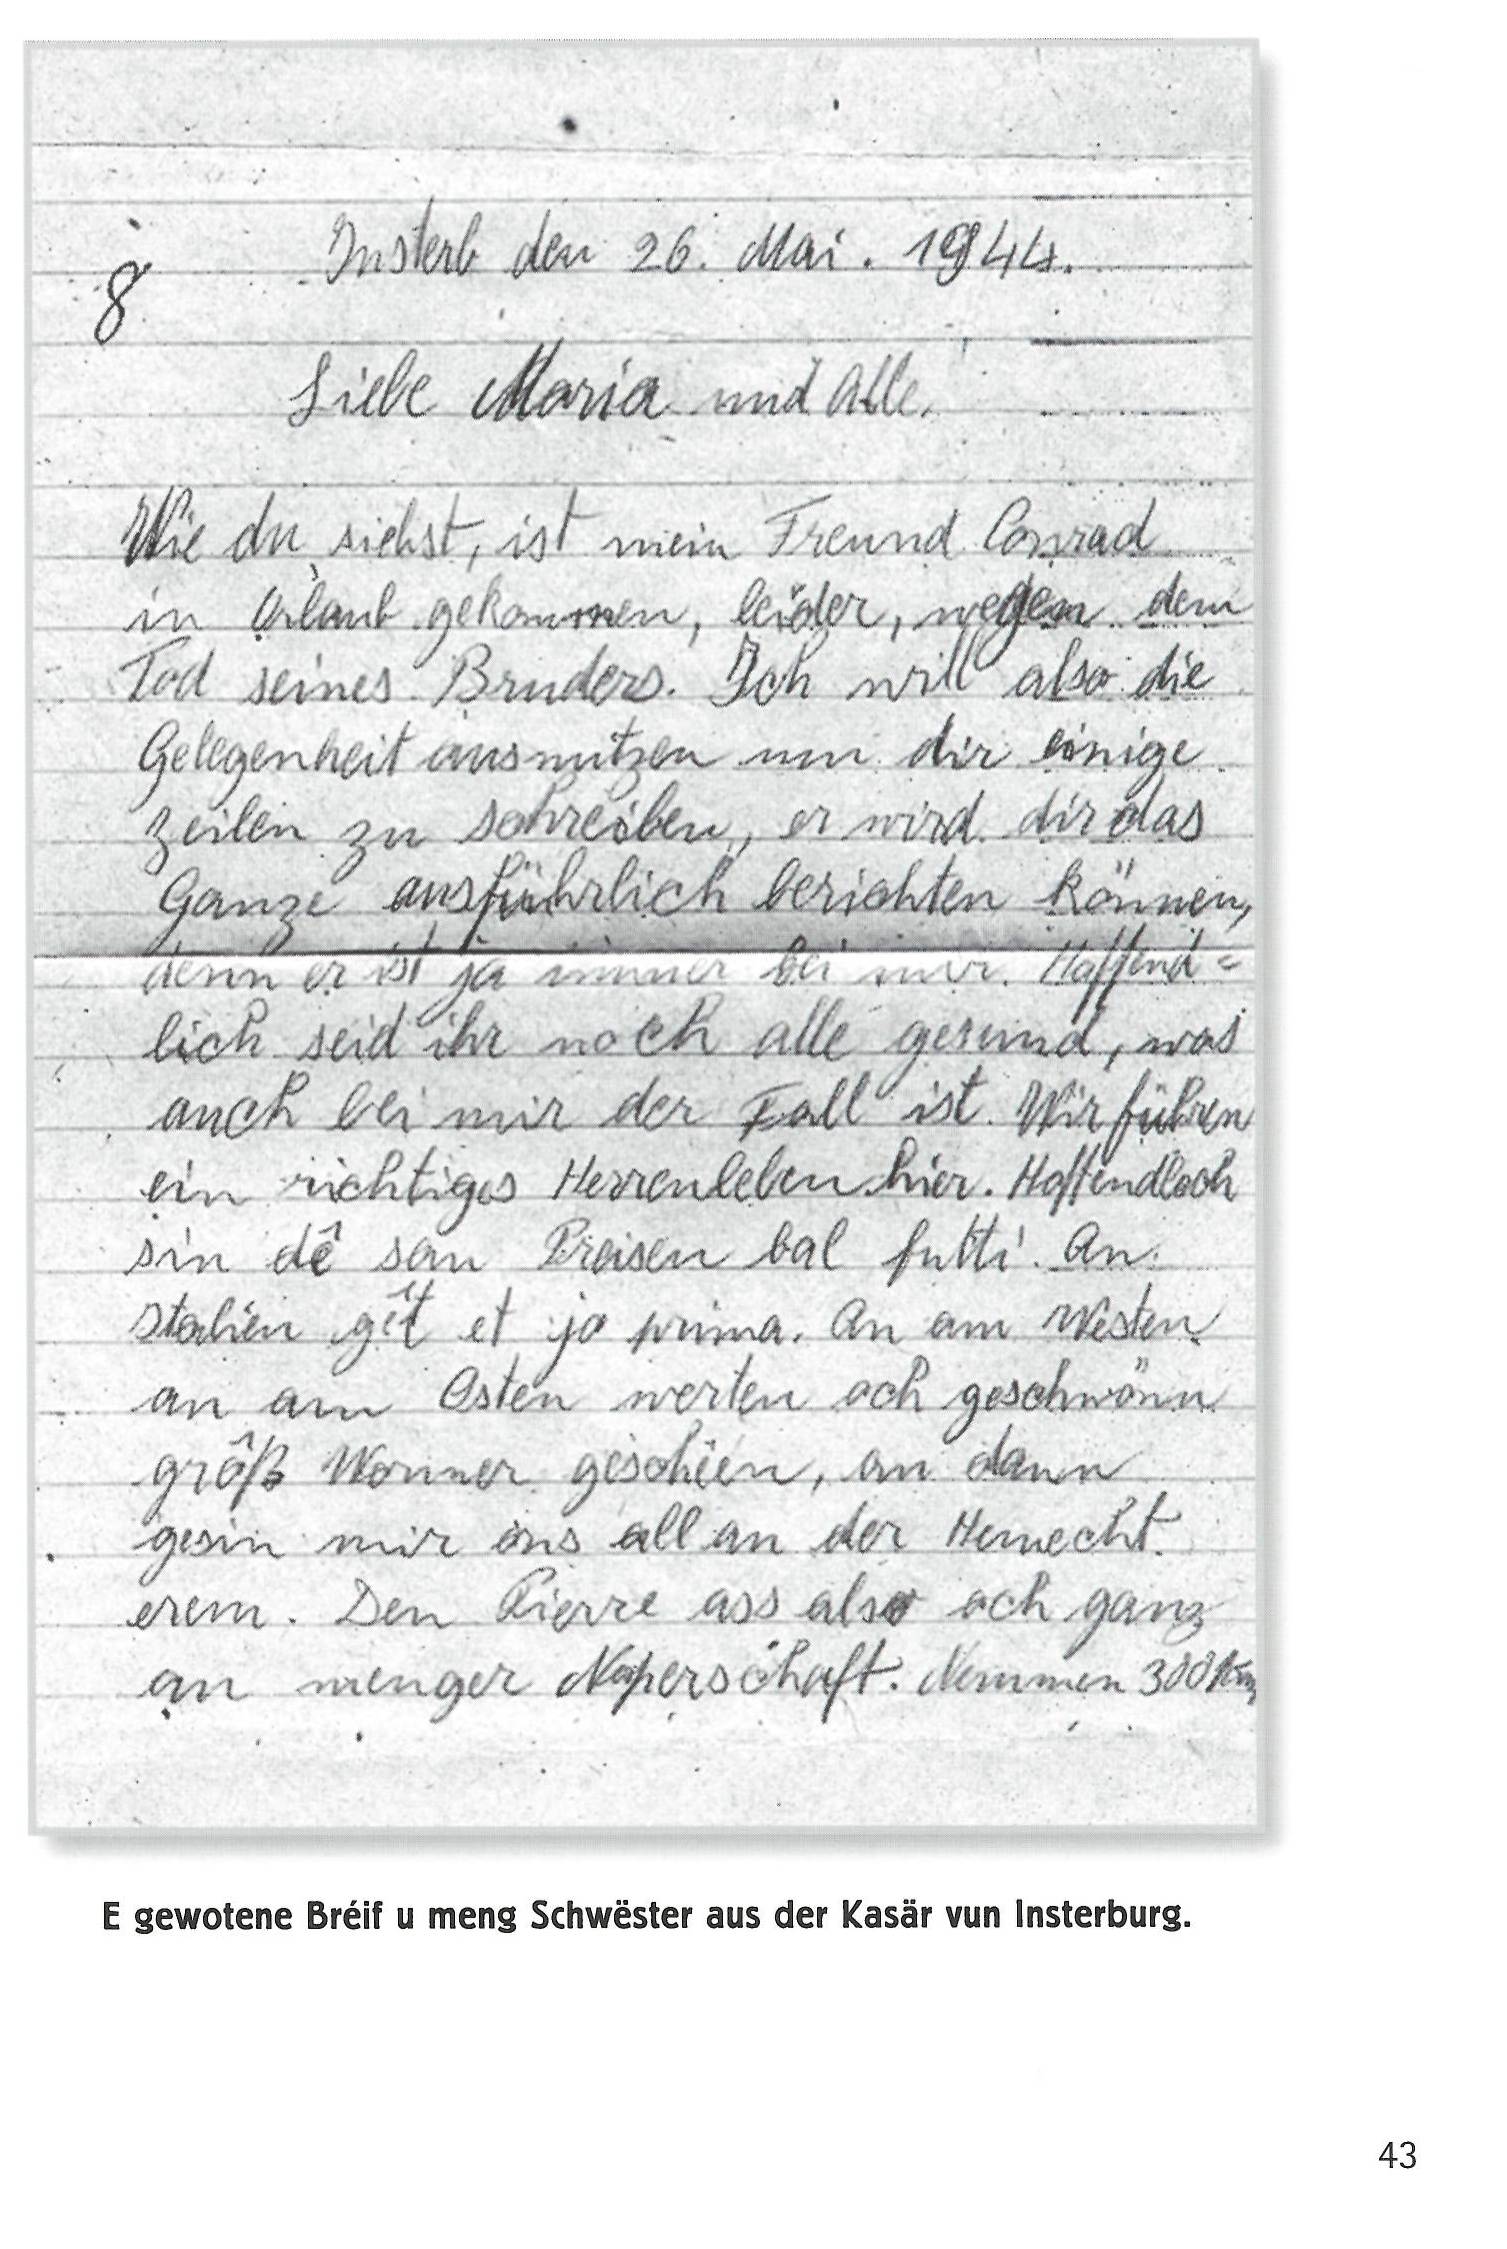 8
Insterb den 26. Mai. 1944.
Liebe Maria und Alle.
Wie du siehst, ist mein Freund Conrad
in Urlaub gekommen, leider, wegen dem
Tod seines Bruders. Ich will also die
Gelegenheit ausnutzen um dir einige
zeilen zu schreiben, er wird dir das
Ganze ausführlich berichten können,
denn er ist ja immer bei mir. Hoffend=
lich seid ihr noch alle gesund, was
auch bei mir der Fall ist. Wir führen
ein richtiges Herrenleben hier. Hoffendlech
sin dê sau Preisen bal futti. An
Italien gêt et jo prima. An am Westen
an am Osten werten och geschwönn
grôß Wonner geschéien, an dann
gesin mir ons all an der Hemecht
erem. Den Pierre ass also och ganz
an menger Noperschaft. Nemmen 300 km
E gewotene Bréif u meng Schwëster aus der Kasär vun Insterburg.
43